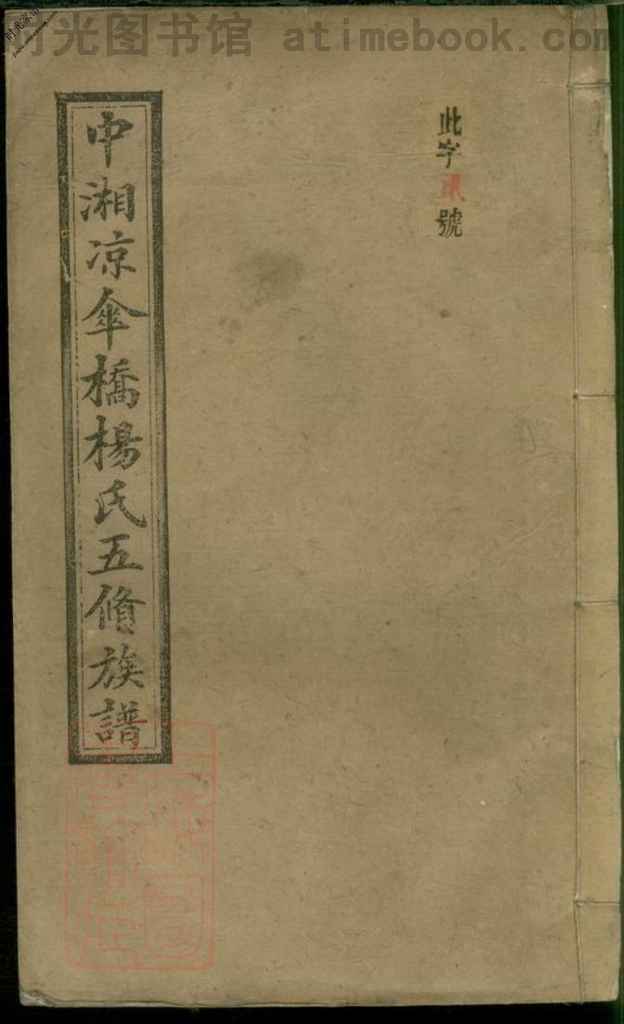 时光图书馆 atimebook.com
此字貳號
中湘凉傘橋楊氏五脩族譜